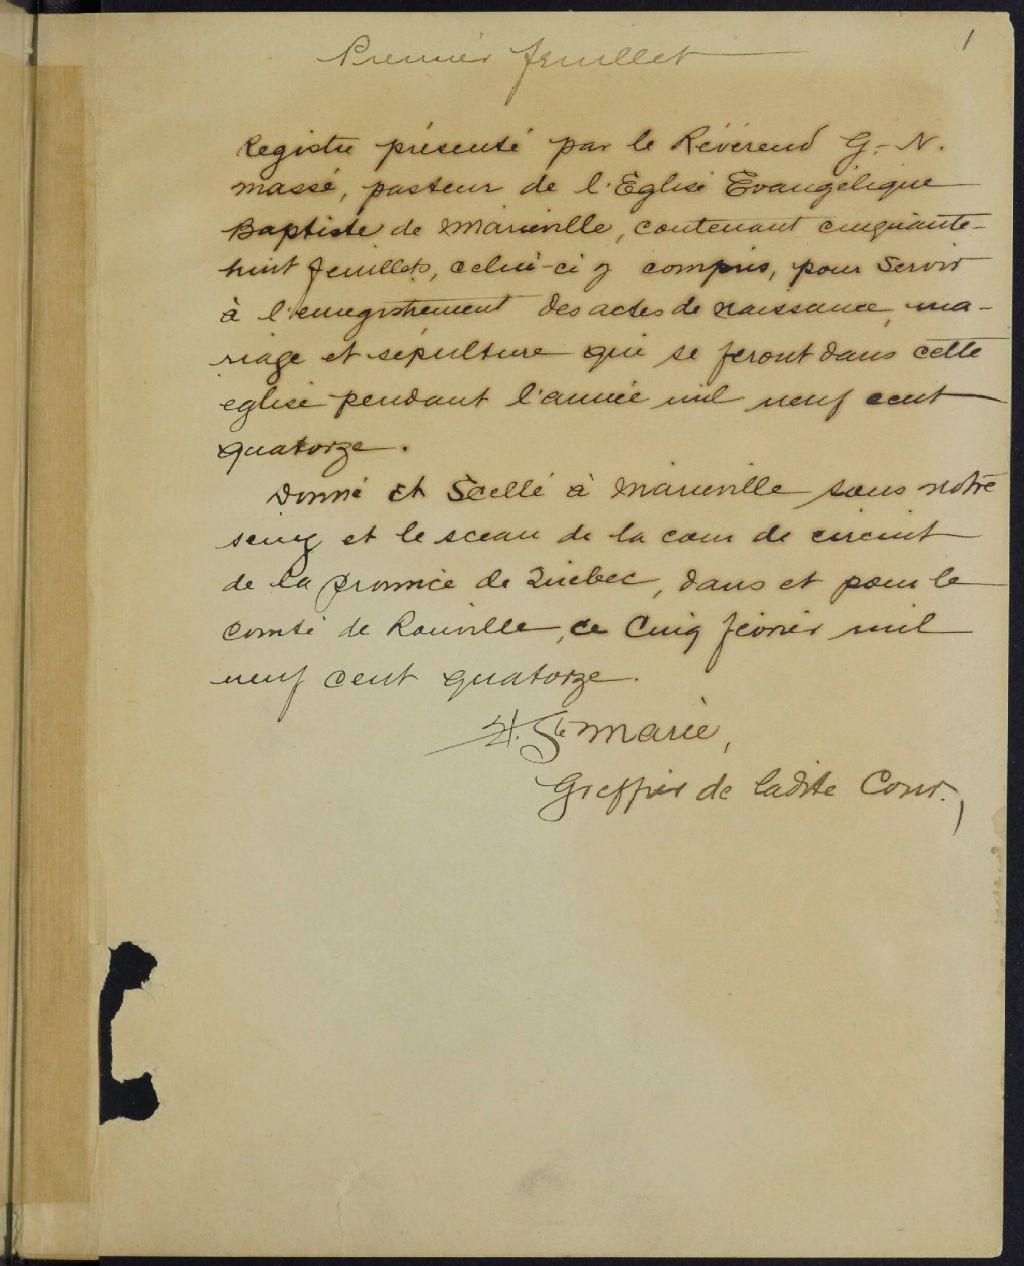 1
Premier feuillet
Registre présenté par le Révérend G.-N.
Massé, pasteur de l'Eglise Evangélique
Baptiste de Marieville, contenant cinquante-
huit feuillets, celui-ci y compris, pour servir
à l'enregistrement des actes de naissance, ma-
riage et sépulture qui se feront dans cette
église pendant l'année mil neuf cent
quatorze.
Donné et Scellé à Marieville sous notre
seing et le sceau de la cour de circuit
de la province de Québec, dans et pour le
comté de Rouville, ce Cinq février mil
neuf cent quatorze.
Ste Marie,
Greffier de ladite Cour.